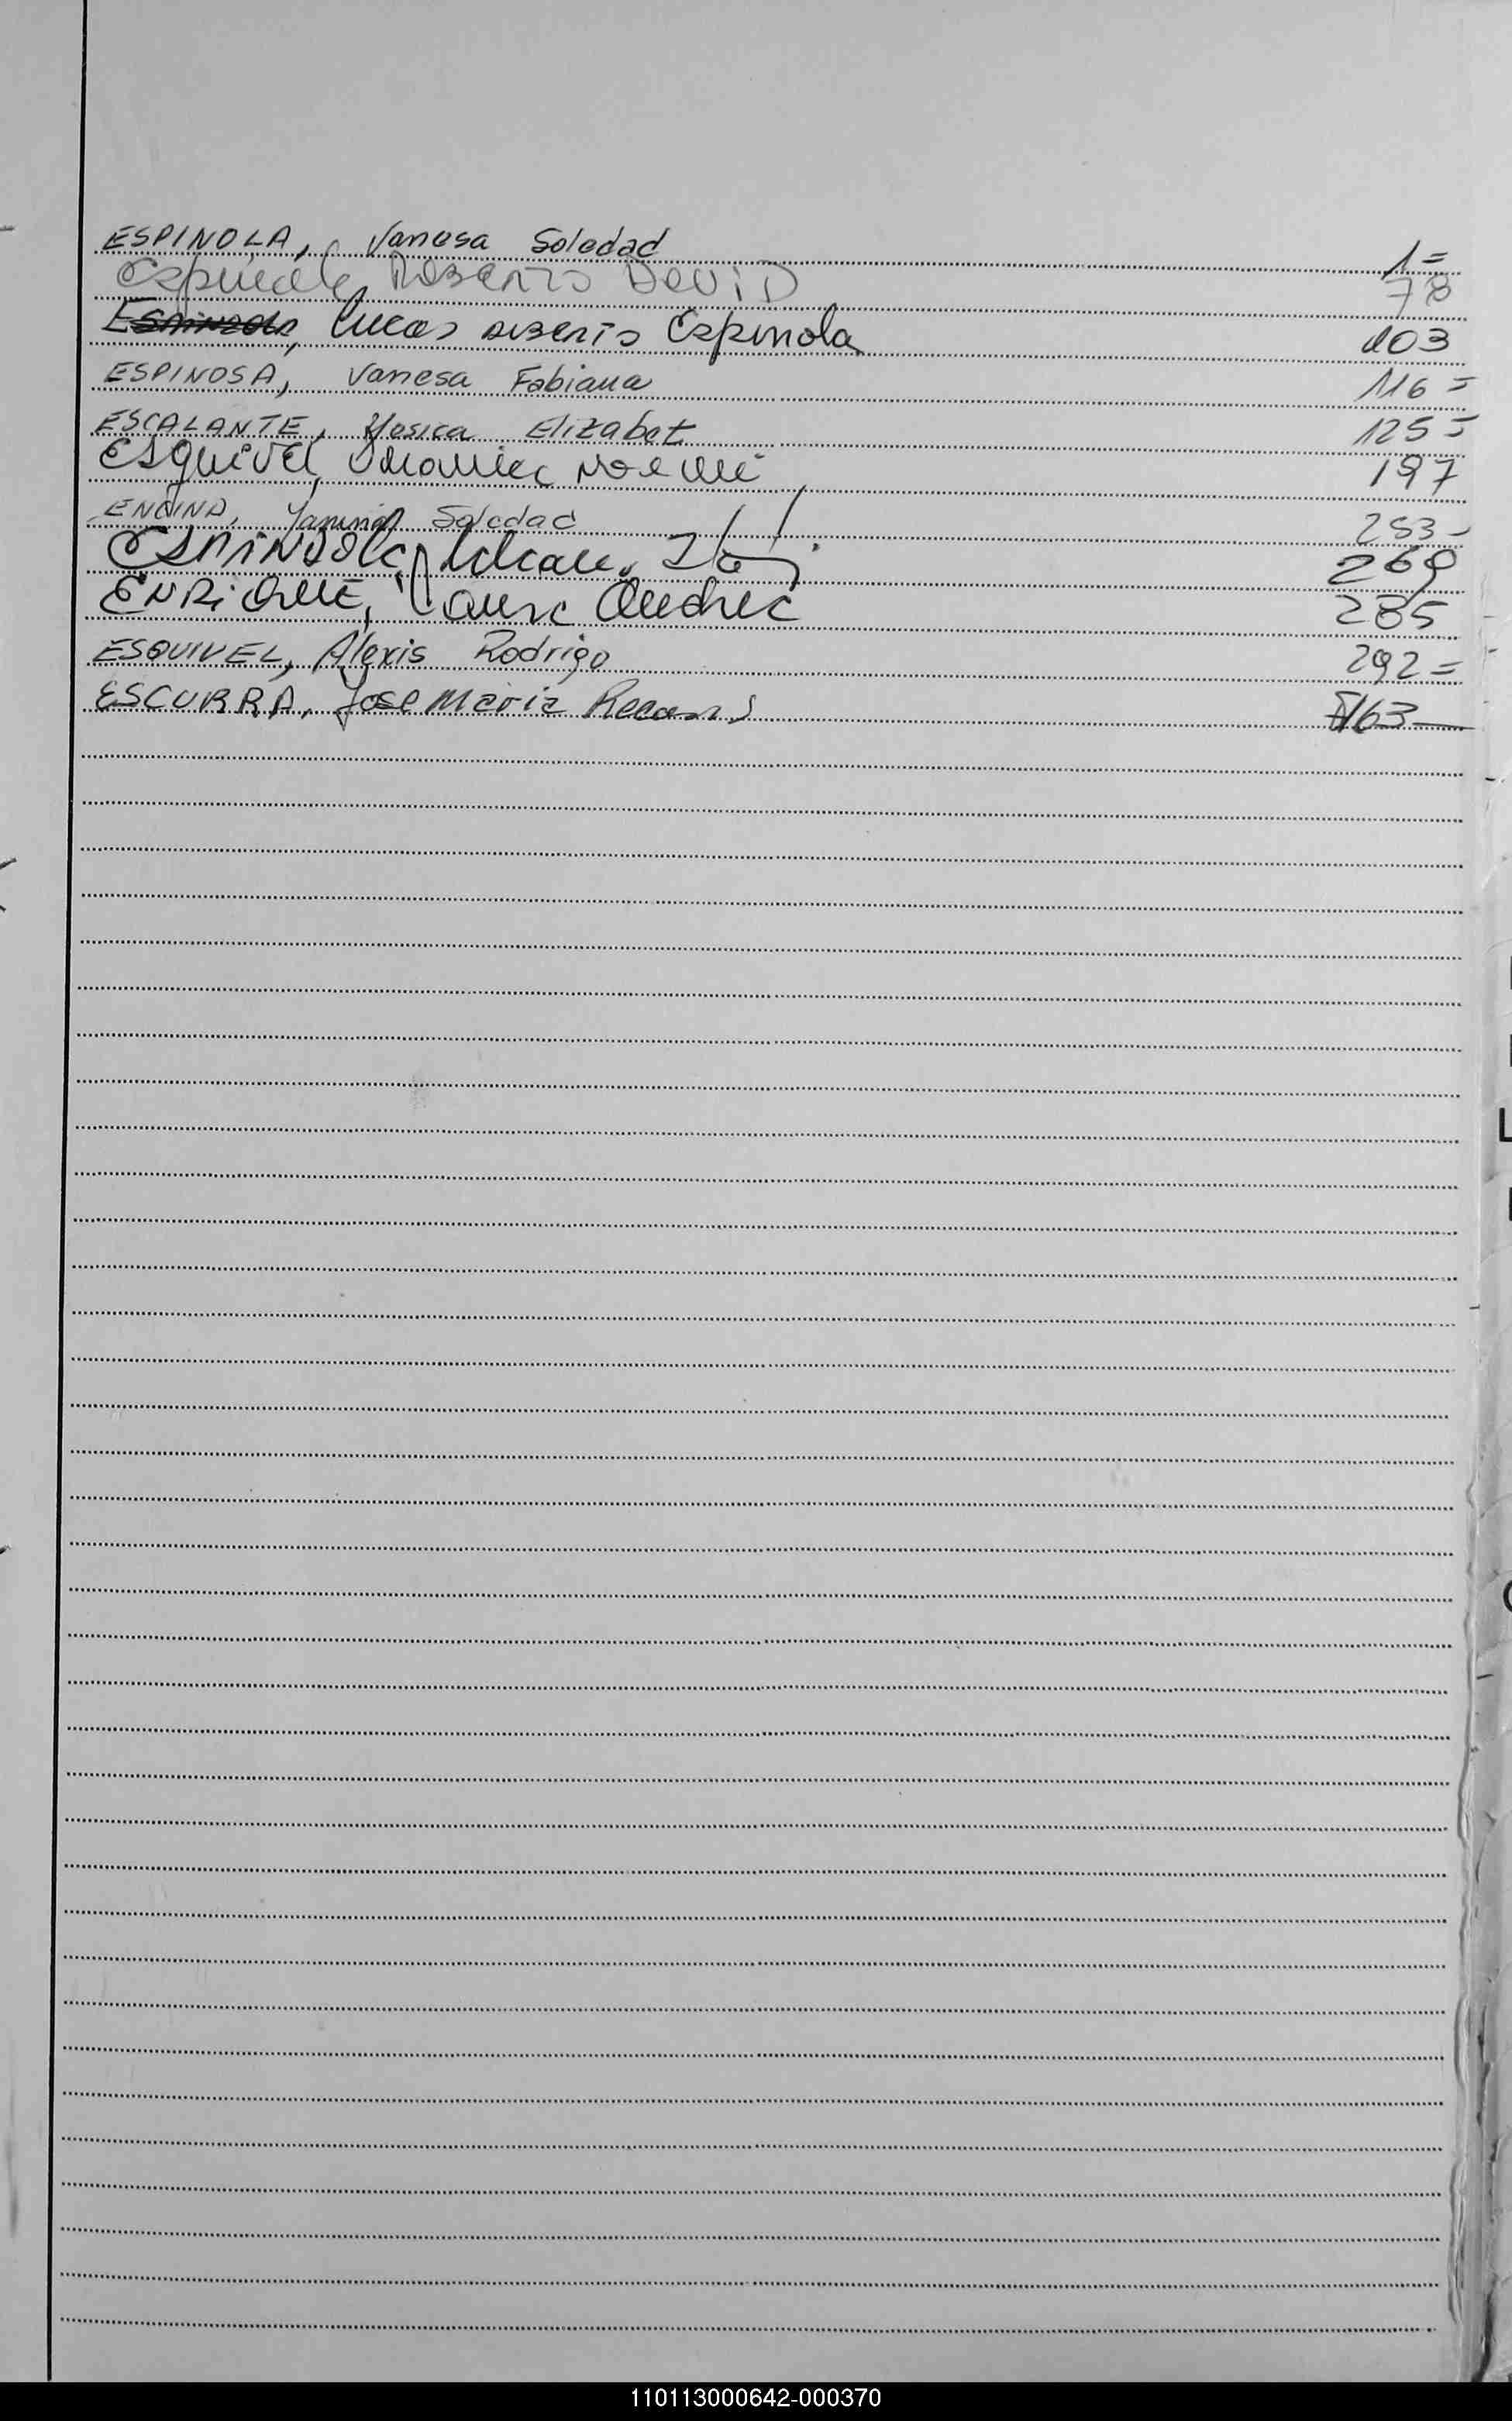 ESPINOLA, Vanesa Soledad 1=
Roberto David 78
Lucas Alberto Espinola 103
ESPINOSA, Vanesa Fabiana 116=
ESCALANTE, Yesica Elizabet 125=
Esquivel, Noemi 197
ENCINA, Yamina Soledad 253-
269
ENRIQUE, Laura Andrea 285
ESQUIVEL, Alexis Rodrigo 292=
ESCURRA, Jose Maria 163
110113000642-000370